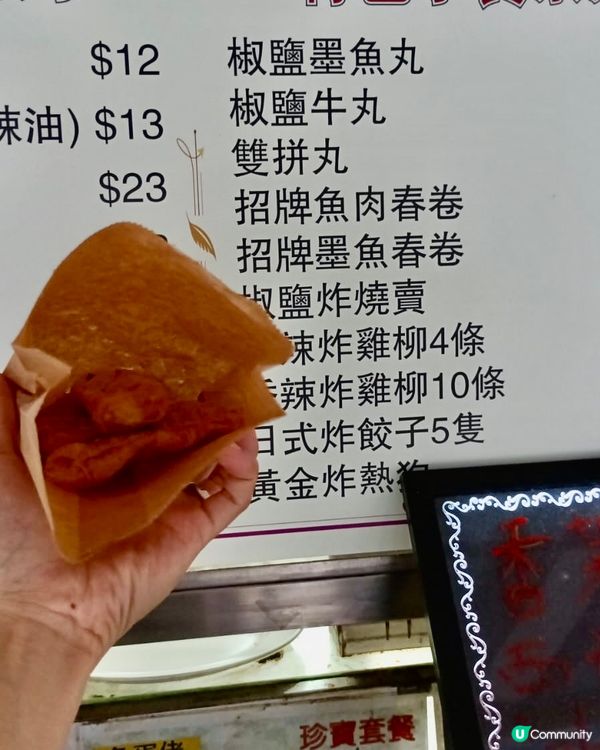 $12
辣油) $13
$23
椒鹽墨魚丸
椒鹽牛丸
雙拼丸
招牌魚肉春卷
招牌墨魚春卷
椒鹽炸燒賣
辣炸雞柳4條
香辣炸雞柳10條
日式炸餃子5隻
黃金炸熱狗
珍寶套餐
UCommunity